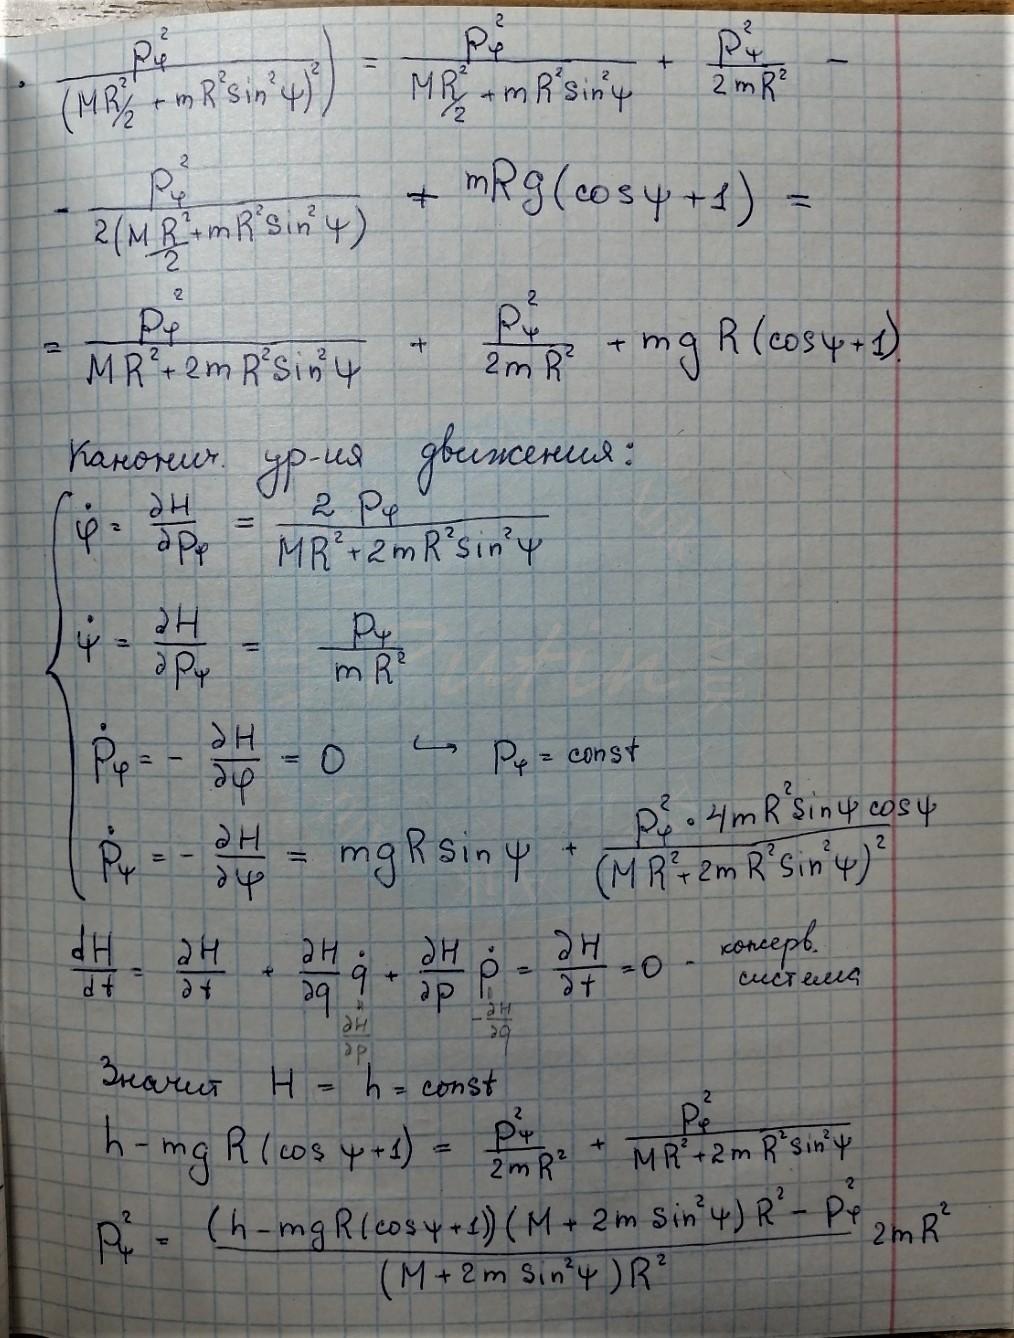 · p_φ² / (MR²/2 + mR² sin²ψ)²) = p_φ² / (MR²/2 + mR² sin²ψ) + p_ψ² / 2mR² −
− p_φ² / 2(MR²/2 + mR² sin²ψ) + mRg(cosψ + 1) =
= p_φ² / (MR² + 2mR² sin²ψ) + p_ψ² / 2mR² + mgR(cosψ + 1).
Канонич. ур-ия движения:
φ̇ = ∂H/∂p_φ = 2p_φ / (MR² + 2mR² sin²ψ)
ψ̇ = ∂H/∂p_ψ = p_ψ / mR²
ṗ_φ = − ∂H/∂φ = 0 ↪ p_φ = const
ṗ_ψ = − ∂H/∂ψ = mgR sinψ + p_φ² · 4mR² sinψ cosψ / (MR² + 2mR² sin²ψ)²
dH/dt = ∂H/∂t + ∂H/∂q q̇ + ∂H/∂p ṗ = ∂H/∂t = 0 - консерв. система
" ∂H/∂p " −∂H/∂q
Значит H = h = const
h − mgR(cosψ + 1) = p_ψ² / 2mR² + p_φ² / (MR² + 2mR² sin²ψ)
p_ψ² = ((h − mgR(cosψ + 1))(M + 2m sin²ψ)R² − p_φ²) / ((M + 2m sin²ψ)R²) 2mR²